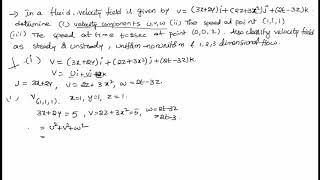 → In a fluid, velocity field is given by V = (3x+2y)i + (2z+3x²)j + (2t-3z)k
determine (i) velocity components u,v,w (ii) The speed at point (1,1,1)
(iii) The speed at time t=2sec at point (0,0,2). Also classify velocity field
as steady & unsteady, uniform & 1,2,3 dimensional flow.
(i) V = (3x+2y)i + (2z+3x²)j + (2t-3z)k
V = Ui + Vj + wk
U = 3x+2y, V = 2z+3x², w = 2t-3z
V(1,1,1) x=1, y=1, z=1
3x+2y = 5, V = 2z+3x² = 5, w = 2t-3z
= 2t-3
= U²+V²+w²
=